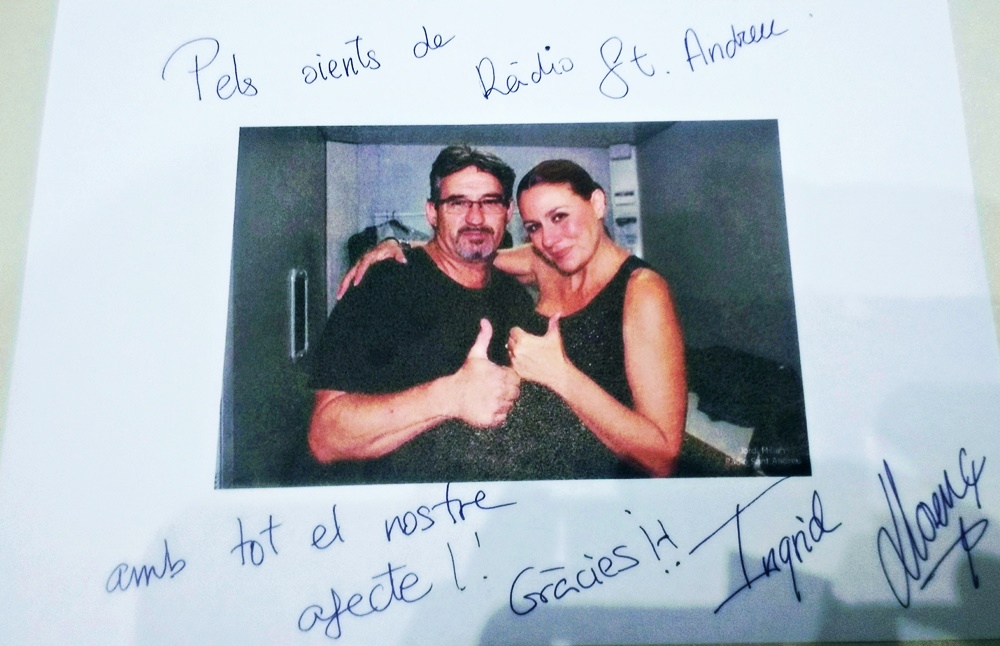 Pels oients de Ràdio St. Andreu
amb tot el nostre
afecte!! Gràcies!! Ingrid